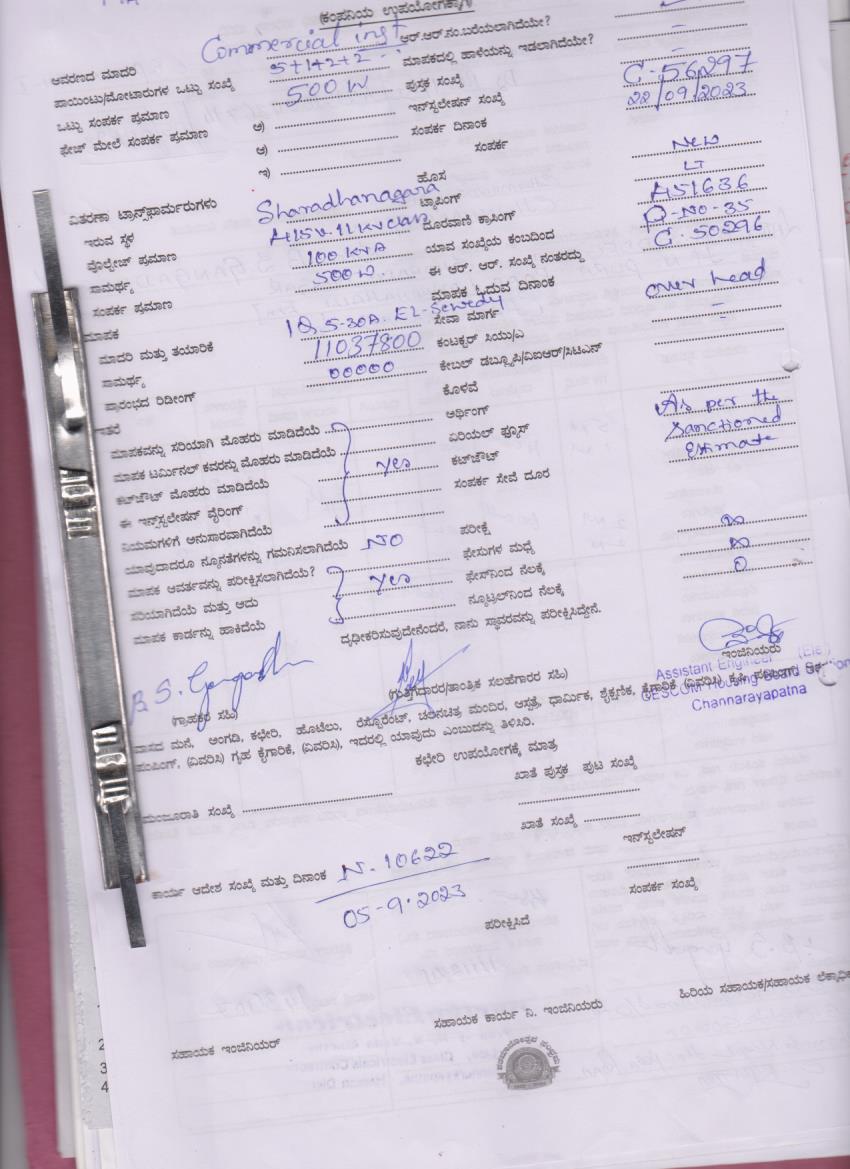 (ಕಂಪನಿಯ ಉಪಯೋಗಕ್ಕಾಗಿ)
ಆವರಣದ ಮಾದರಿ Commercial inst ಆರ್.ಆರ್.ನಂ.ಬರೆಯಲಾಗಿದೆಯೇ?
ಪಾಯಿಂಟು/ಮೋಟಾರುಗಳ ಒಟ್ಟು ಸಂಖ್ಯೆ 5+1+2+2 ಮಾಪಕದಲ್ಲಿ ಹಾಳೆಯನ್ನು ಇಡಲಾಗಿದೆಯೇ? –
ಒಟ್ಟು ಸಂಪರ್ಕ ಪ್ರಮಾಣ 500 W ಪುಸ್ತಕ ಸಂಖ್ಯೆ –
ಫೇಜ್ ಮೇಲೆ ಸಂಪರ್ಕ ಪ್ರಮಾಣ ಅ) ಇನ್‌ಸ್ಟಲೇಷನ್ ಸಂಖ್ಯೆ C-56297
ಆ) ಸಂಪರ್ಕ ದಿನಾಂಕ 22/09/2023
ಇ) ಸಂಪರ್ಕ
ವಿತರಣಾ ಟ್ರಾನ್ಸ್‌ಫಾರ್ಮರುಗಳು ಹೊಸ New
ಇರುವ ಸ್ಥಳ Sharadhanagara ಟ್ಯಾಪಿಂಗ್ LT
ವೊಲ್ಟೇಜ್ ಪ್ರಮಾಣ ದೂರವಾಣಿ ಕ್ರಾಸಿಂಗ್ A51636
ಸಾಮರ್ಥ್ಯ 100 KVA ಯಾವ ಸಂಖ್ಯೆಯ ಕಂಬದಿಂದ P-NO-35
ಸಂಪರ್ಕ ಪ್ರಮಾಣ 500 W. ಈ ಆರ್. ಆರ್. ಸಂಖ್ಯೆ ನಂತರದ್ದು C. 50296
ಮಾಪಕ ಮಾಪಕ ಓದುವ ದಿನಾಂಕ
ಮಾದರಿ ಮತ್ತು ತಯಾರಿಕೆ 5-30A. EL-Sewedy ಸೇವಾ ಮಾರ್ಗ over head
ಸಾಮರ್ಥ್ಯ 11037800 ಕಂಟಕ್ಟರ್ ಸಿಯು/ಎ –
ಪ್ರಾರಂಭದ ರಿಡೀಂಗ್ 00000 ಕೇಬಲ್ ಡಬ್ಲ್ಯೂಪಿ/ವಿಐಆರ್/ಸಿಟಿಎನ್
ಇತರೆ ಕೊಳವೆ
ಮಾಪಕವನ್ನು ಸರಿಯಾಗಿ ಮೊಹರು ಮಾಡಿದೆಯೆ ಅರ್ಥಿಂಗ್ As per the
ಮಾಪಕ ಟರ್ಮಿನಲ್ ಕವರನ್ನು ಮೊಹರು ಮಾಡಿದೆಯೆ ಏರಿಯಲ್ ಫ್ಯೂಸ್ Sanctioned
ಕಟ್‌ಔಟ್ ಮೊಹರು ಮಾಡಿದೆಯೆ Yes ಕಟ್‌ಔಟ್ Estimate
ಈ ಇನ್‌ಸ್ಟಲೇಷನ್ ವೈರಿಂಗ್ ಸಂಪರ್ಕ ಸೇವೆ ದೂರ
ನಿಯಮಗಳಿಗೆ ಅನುಸಾರವಾಗಿದೆಯೆ
ಯಾವುದಾದರೂ ನ್ಯೂನತೆಗಳನ್ನು ಗಮನಿಸಲಾಗಿದೆಯೆ NO ಪರೀಕ್ಷೆ
ಮಾಪಕ ಆವರ್ತವನ್ನು ಪರೀಕ್ಷಿಸಲಾಗಿದೆಯೆ? ಫೇಸುಗಳ ಮಧ್ಯೆ ∞
ಸರಿಯಾಗಿದೆಯೆ ಮತ್ತು ಅದು Yes ಫೇಸ್‌ನಿಂದ ನೆಲಕ್ಕೆ ∞
ಮಾಪಕ ಕಾರ್ಡನ್ನು ಹಾಕಿದೆಯೆ ನ್ಯೂಟ್ರಲ್‌ನಿಂದ ನೆಲಕ್ಕೆ 0
ದೃಢೀಕರಿಸುವುದೇನೆಂದರೆ, ನಾನು ಸ್ಥಾವರವನ್ನು ಪರೀಕ್ಷಿಸಿದ್ದೇನೆ.
B. S. Gangadh
ಇಂಜಿನಿಯರು
Assistant Engineer (Ele)
CESCOM Housing Board Section
Channarayapatna
(ಗ್ರಾಹಕರ ಸಹಿ) (ಗುತ್ತಿಗೆದಾರರ/ತಾಂತ್ರಿಕ ಸಲಹೆಗಾರರ ಸಹಿ)
ವಾಸದ ಮನೆ, ಅಂಗಡಿ, ಕಛೇರಿ, ಹೊಟೆಲು, ರೆಸ್ಟೊರೆಂಟ್, ಚಲನಚಿತ್ರ ಮಂದಿರ, ಆಸ್ಪತ್ರೆ, ಧಾರ್ಮಿಕ, ಶೈಕ್ಷಣಿಕ, ಕೈಗಾರಿಕೆ (ವಿವರಿಸಿ)
ಪಂಪಿಂಗ್, (ವಿವರಿಸಿ) ಗೃಹ ಕೈಗಾರಿಕೆ, (ವಿವರಿಸಿ), ಇದರಲ್ಲಿ ಯಾವುದು ಎಂಬುದನ್ನು ತಿಳಿಸಿರಿ.
ಕಛೇರಿ ಉಪಯೋಗಕ್ಕೆ ಮಾತ್ರ
ಮಂಜೂರಾತಿ ಸಂಖ್ಯೆ ಖಾತೆ ಪುಸ್ತಕ ಪುಟ ಸಂಖ್ಯೆ
ಖಾತೆ ಸಂಖ್ಯೆ
ಇನ್‌ಸ್ಟಲೇಷನ್
ಕಾರ್ಯ ಆದೇಶ ಸಂಖ್ಯೆ ಮತ್ತು ದಿನಾಂಕ N. 10622
05-9.2023 ಸಂಪರ್ಕ ಸಂಖ್ಯೆ
ಪರೀಕ್ಷಿಸಿದೆ
ಸಹಾಯಕ ಇಂಜಿನಿಯರ್ ಸಹಾಯಕ ಕಾರ್ಯ ನಿ. ಇಂಜಿನಿಯರು ಹಿರಿಯ ಸಹಾಯಕ/ಸಹಾಯಕ
2
3
4